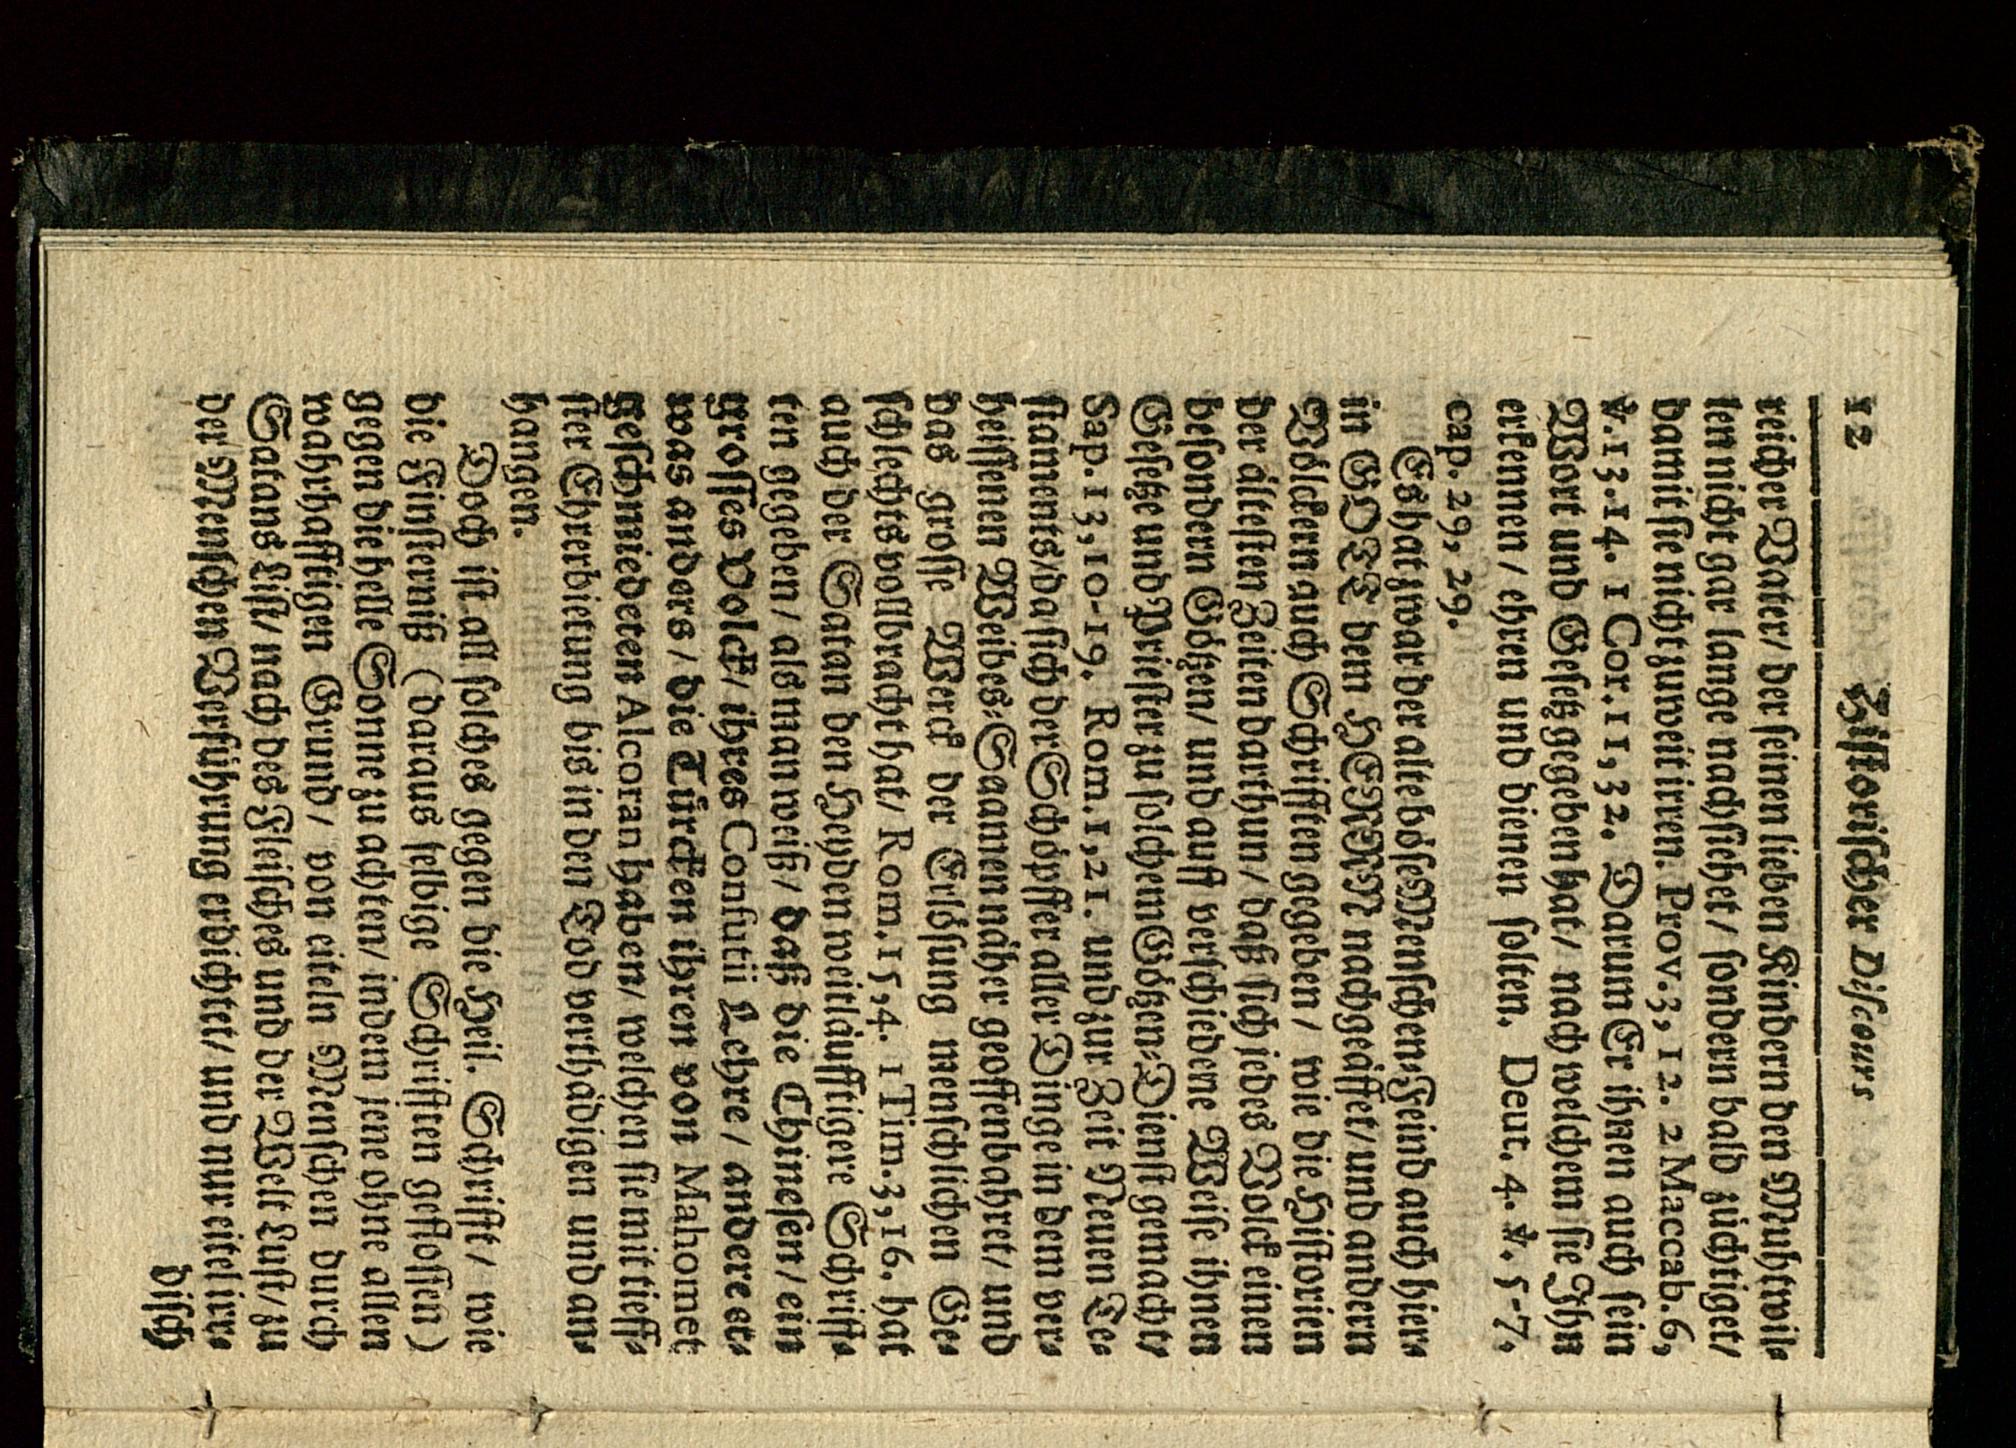 12 Hiſtoriſcher Diſcours
reicher Vater/ der ſeinen lieben Kindern den Muhtwil⸗
len nicht gar lange nachſiehet/ ſondern bald züchtiget/
damit ſie nicht zuweit irren. Prov. 3, 12. 2 Maccab. 6,
℣. 13. 14. 1 Cor. 11, 32. Darum Er ihnen auch ſein
Wort und Geſetz gegeben hat/ nach welchem ſie Jhn
erkennen / ehren und dienen ſolten. Deut. 4. ℣. 5-7.
cap. 29, 29.
Es hat zwar der alte böſe Menſchen⸗Feind auch hier⸗
in GOTT dem HERRN nachgeäffet/ und andern
Völckern auch Schrifften gegeben / wie die Hiſtorien
der älteſten Zeiten darthun / daß ſich jedes Volck einen
beſondern Götzen/ und auff verſchiedene Weiſe ihnen
Geſetze und Prieſter zu ſolchem Götzen⸗Dienſt gemacht/
Sap. 13, 10-19. Rom. 1, 21. und zur Zeit Neuen Te⸗
ſtaments/ da ſich der Schöpffer aller Dinge in dem ver⸗
heiſſenen Weibes⸗Saamen näher geoffenbahret/ und
das groſſe Werck der Erlöſung menſchlichen Ge⸗
ſchlechts vollbracht hat/ Rom. 15, 4. 1 Tim. 3, 16. hat
auch der Satan den Heyden weitläufftigere Schriff⸗
ten gegeben/ als man weiß/ daß die Chineſen/ ein
groſſes Volck/ ihres Confutii Lehre / andere et⸗
was anders / die Türcken ihren von Mahomet
geſchmiedeten Alcoran haben/ welchen ſie mit tieff⸗
ſter Ehrerbietung bis in den Tod verthädigen und an⸗
hangen.
Doch iſt all ſolches gegen die Heil. Schrifft/ wie
die Finſterniß (daraus ſelbige Schrifften gefloſſen)
gegen die helle Sonne zu achten/ indem jene ohne allen
warhafftigen Grund/ von eiteln Menſchen durch
Satans Liſt/ nach des Fleiſches und der Welt Luſt/ zu
der Menſchen Verführung erdichtet/ und nur eitel irr⸗
diſch